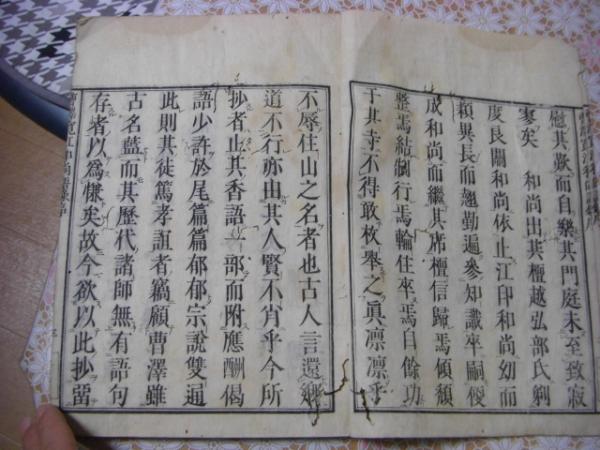 慰其歎而自樂其門庭未至致寂
寥矣　和尚出其檀越弘部氏剏
度艮關和尚依止江印和尚幼而
穎異長而翹勤遍參知識卒嗣儍
成和尚而繼其席檀信歸焉傾頹
整焉結制行焉輪住卒焉自餘功
于其寺不得敢枚舉之眞凛凛乎
不辱住山之名者也古人言還鄉
道不行亦由其人賢不肖乎今所
抄者止其香語一部而附應酬偈
語少許於尾篇篇郁郁宗說雙通
此則其徒篤孝誼者竊顧曹澤雖
古名藍而其歷代諸師無有語句
存者以為慊矣故今欲以此抄畱